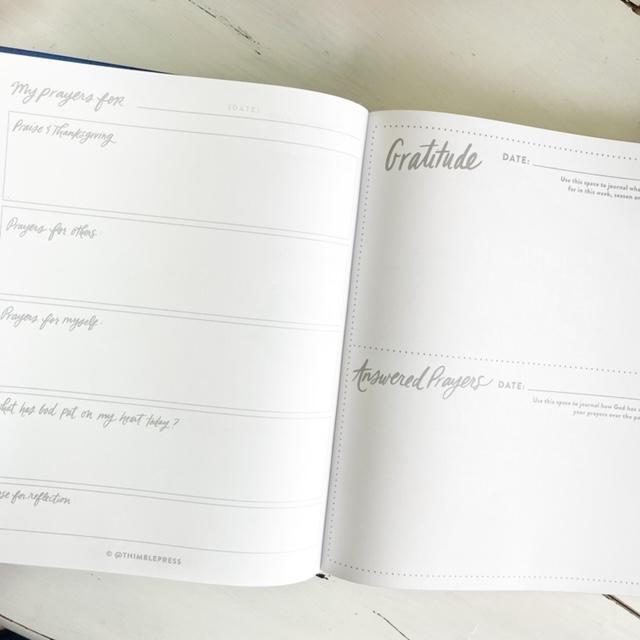 My prayers for
(DATE)
Praise & Thanksgiving
Prayers for others:
Prayers for myself:
What has God put on my heart today?
for reflection
© @THIMBLEPRESS
Gratitude
DATE:
Use this space to journal
for in this week, season
Answered Prayers
DATE:
Use this space to journal how God has
your prayers over the